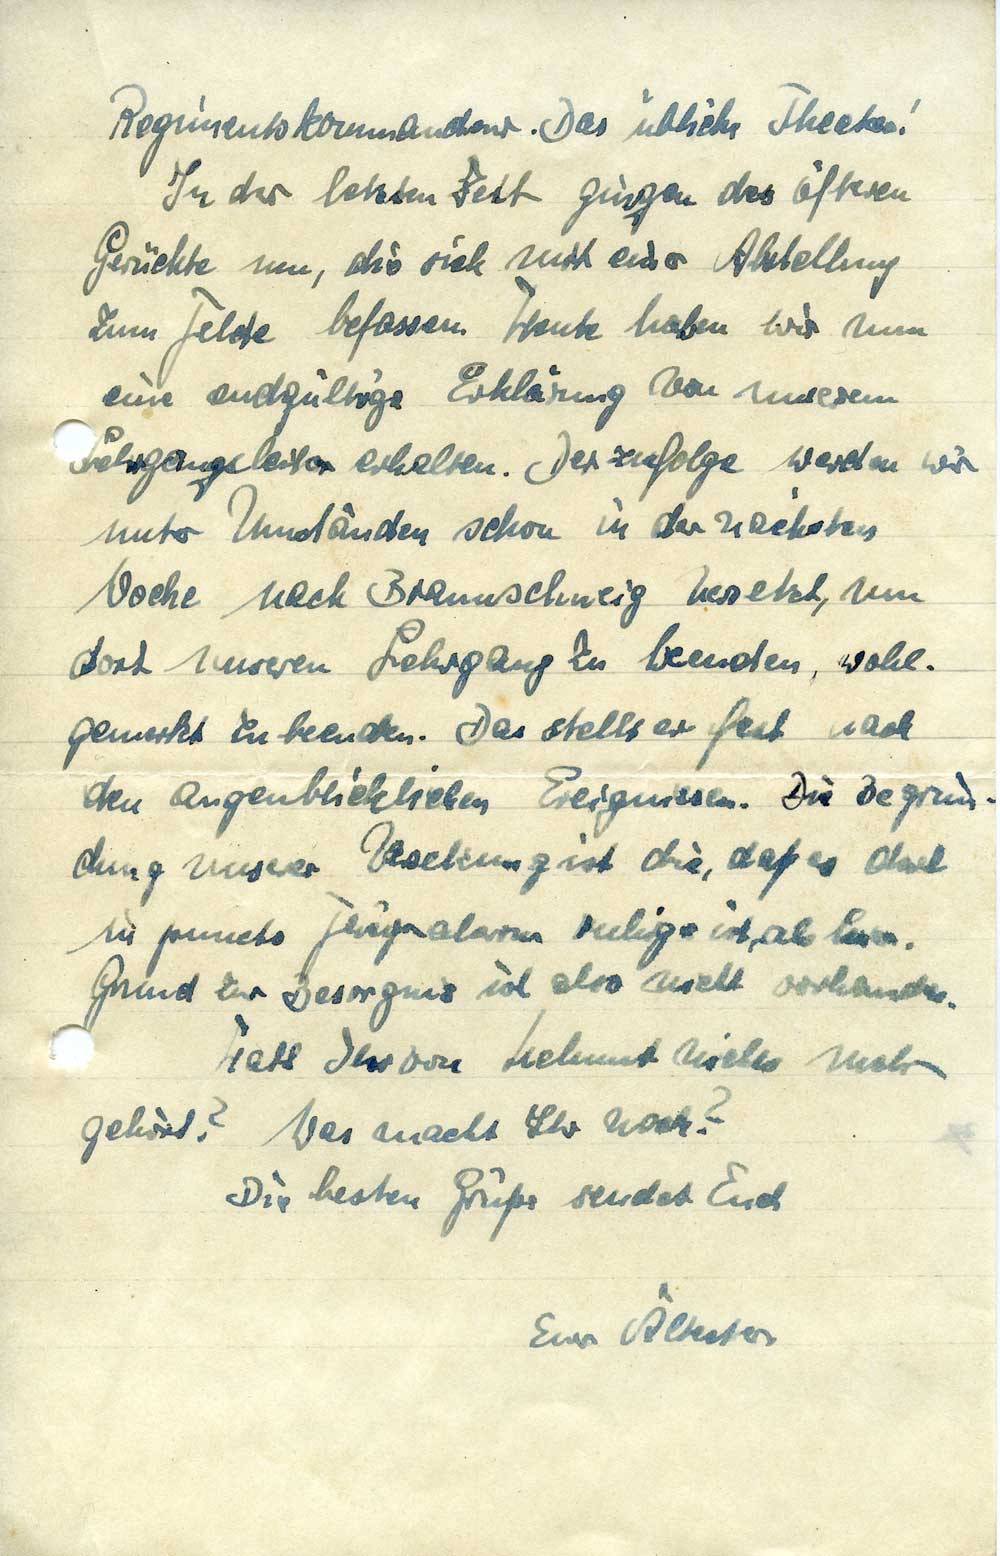 Regimentskommandeur. Das übliche Theater!
In der letzten Zeit gingen des öfteren
Gerüchte um, die sich mit einer Abstellung
zum Felde befassen. Heute haben wir nun
eine endgültige Erklärung von unserem
Lehrgangsleiter erhalten. Derzufolge werden wir
unter Umständen schon in der nächsten
Woche nach Braunschweig versetzt, um
dort unseren Lehrgang zu beenden, wohl-
gemerkt zu beenden. Das stellt er fest nach
den augenblicklichen Ereignissen. Die Begrün-
dung unserer Versetzung ist die, daß es dort
in puncto Fliegeralarm ruhiger ist, als hier.
Grund zur Besorgnis ist also nicht vorhanden.
Habt Ihr von Helmut nichts mehr
gehört? Was macht Ihr noch?
Die besten Grüße sendet Euch
Euer Ältester